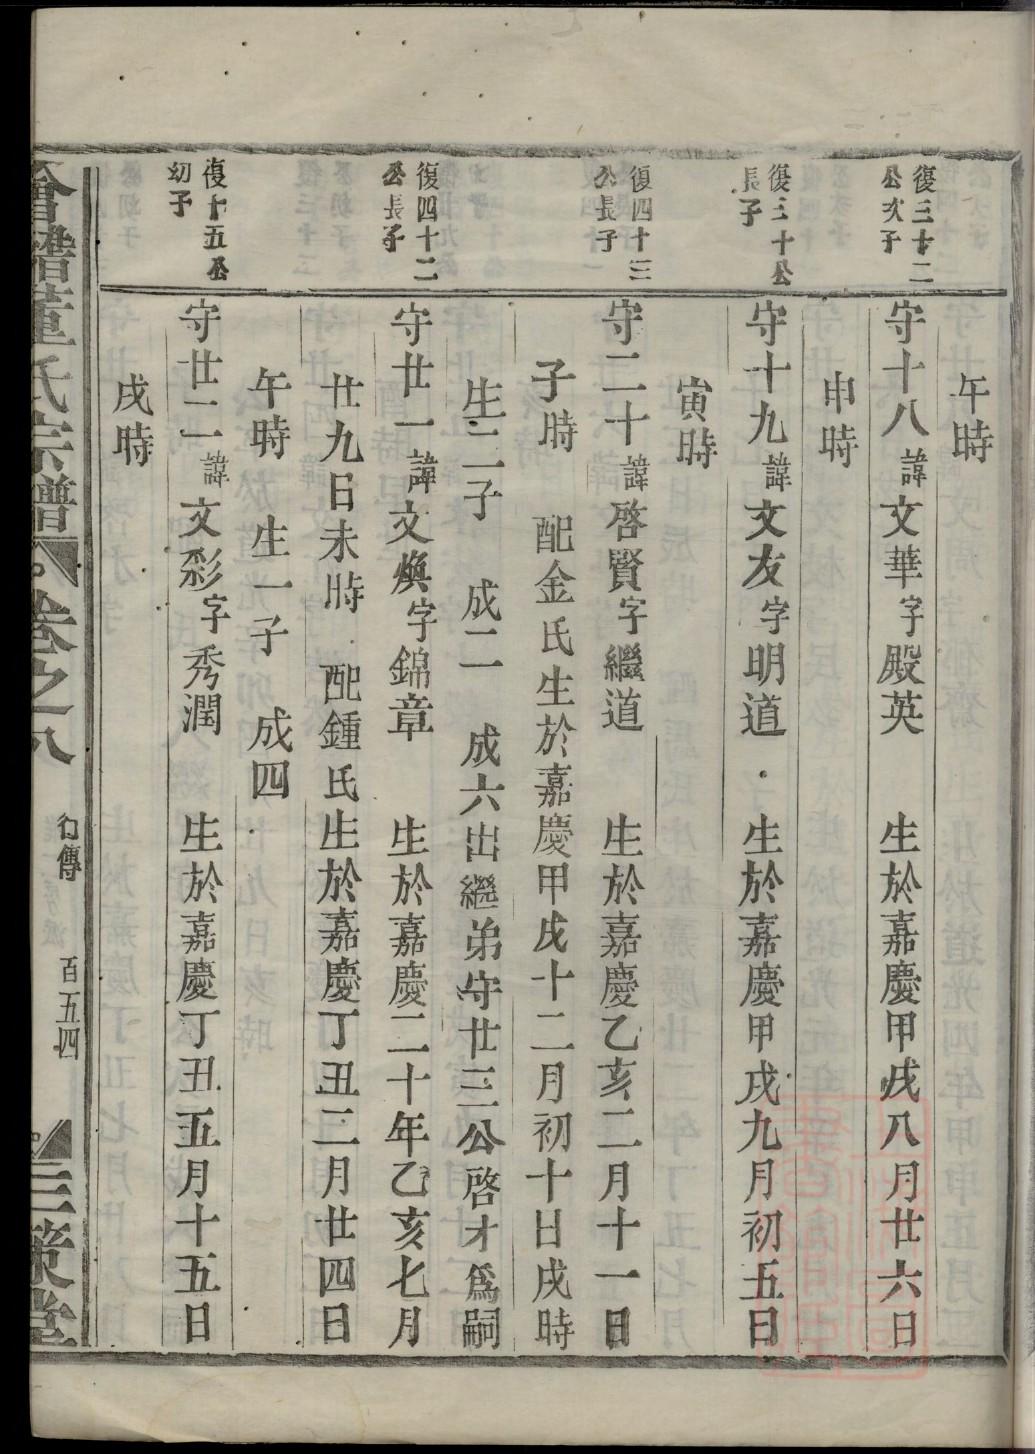 午時
復三十二
公次子
守十八諱文華字殿英　生於嘉慶甲戌八月廿六日
申時
復三十公
長子
守十九諱文友字明道　生於嘉慶甲戌九月初五日
寅時
復四十三
公長子
守二十諱啓賢字繼道　生於嘉慶乙亥二月十一日
子時　配金氏生於嘉慶甲戌十二月初十日戌時
生二子　成二　成六出繼弟守廿三公啓才為嗣
復四十二
公長子
守廿一諱文煥字錦章　生於嘉慶二十年乙亥七月
廿九日未時　配鍾氏生於嘉慶丁丑二月廿四日
午時　生一子　成四
復十五公
幼子
守廿二諱文彩字秀潤　生於嘉慶丁丑五月十五日
戌時
董氏宗譜　卷之八　行傳　百五四　三策堂